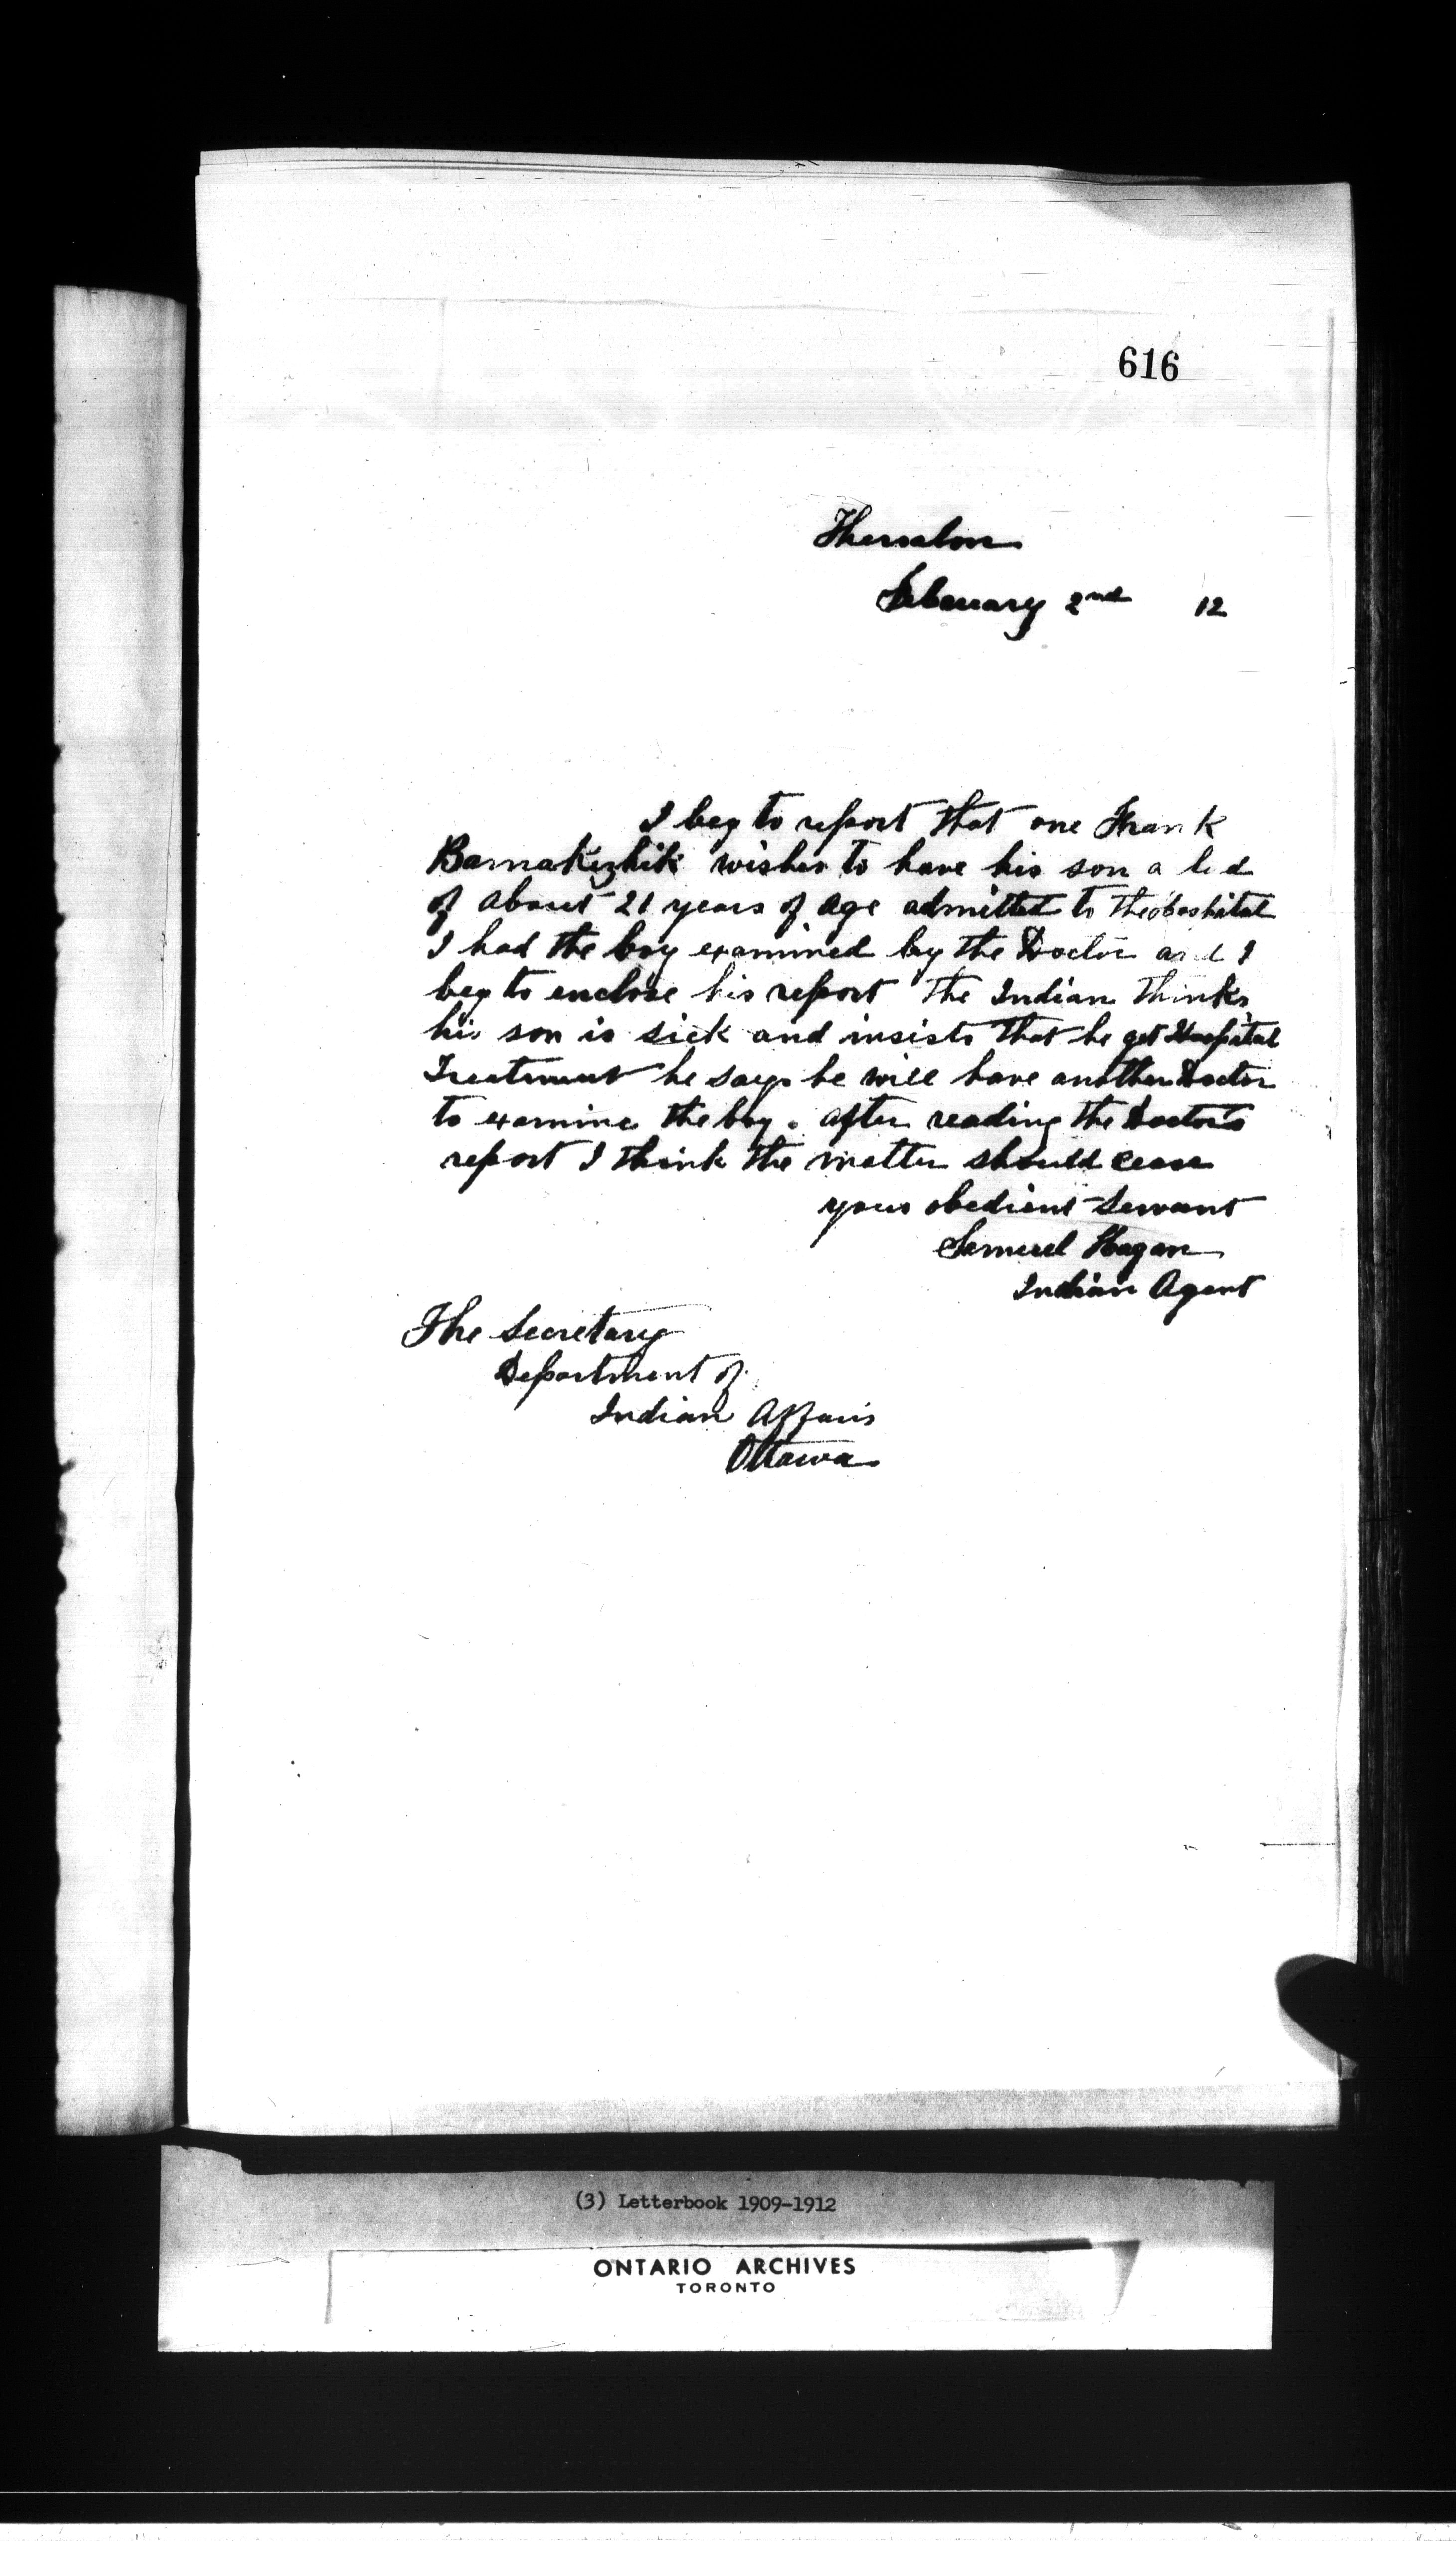 616
Thessalon
February 2nd 12
I beg to report that one Frank
Barnakezhik wishes to have his son a lad
of about 21 years of age admitted to the hospital
I had the boy examined by the Doctor and I
beg to enclose his report the Indian thinks
his son is sick and insists that he get Hospital
Treatment he says he will have another Doctor
to examine the boy. after reading the Doctors
report I think the matter should cease
your obedient servant
Samuel Hagan
Indian Agent
The Secretary
Department of
Indian Affairs
Ottawa
(3) Letterbook 1909-1912
ONTARIO ARCHIVES
TORONTO